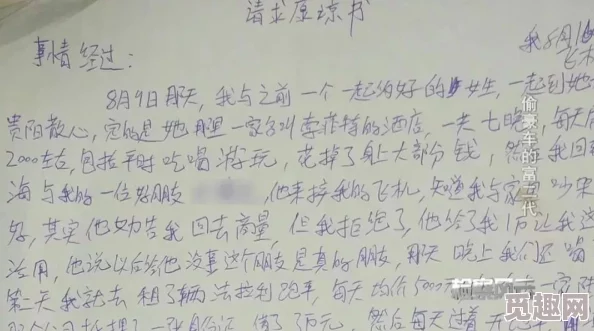 请求原谅书
事情经过：
我8月1
飞机
8月9日那天，我与之前一个一起约好的女生，一起到她
贵阳散心，定的是她那里一家名叫索菲特的酒店，一共七晚，每天
2000左右，包括平时吃喝游玩，花掉了身上大部分钱，然后我回
海与我的一位好朋友 他来接我的飞机，知道我与家里吵架
好，其实他劝告我回去商量，但我拒绝了，他给了我1万让我
活用，他说以后给他没事这个朋友是真的朋友，那天晚上我们还喝
第二天我就去租了辆法拉利跑车，每天均价5000
公司抵押了一张身份证，借了 万元，然后每天过着
偷豪车的富二代
觅趣网
www.7mj.com